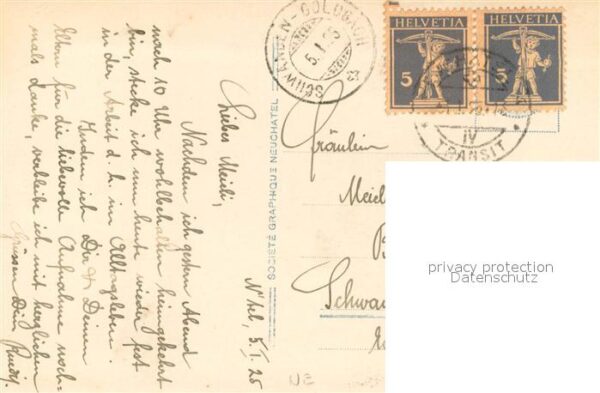 N'tel, 5./I. 25
Liebes Meieli,
Nachdem ich gestern Abend
nach 10 Uhr wohlbehalten heimgekehrt
bin, stecke ich nun heute wieder fest
in der Arbeit d. h. im Alltagsleben.
Indem ich Dir & Deinen
Eltern für die liebevolle Aufnahme noch-
mals danke, verbleibe ich mit herzlichen
Grüssen Dein Ruedi.
SOCIÉTÉ GRAPHIQUE NEUCHATEL
HELVETIA
5
HELVETIA
5
SCHWANDEN-GOLDBACH
5.I.25
IV
TRANSIT
Fräulein
Meie
Schwa
privacy protection
Datenschutz